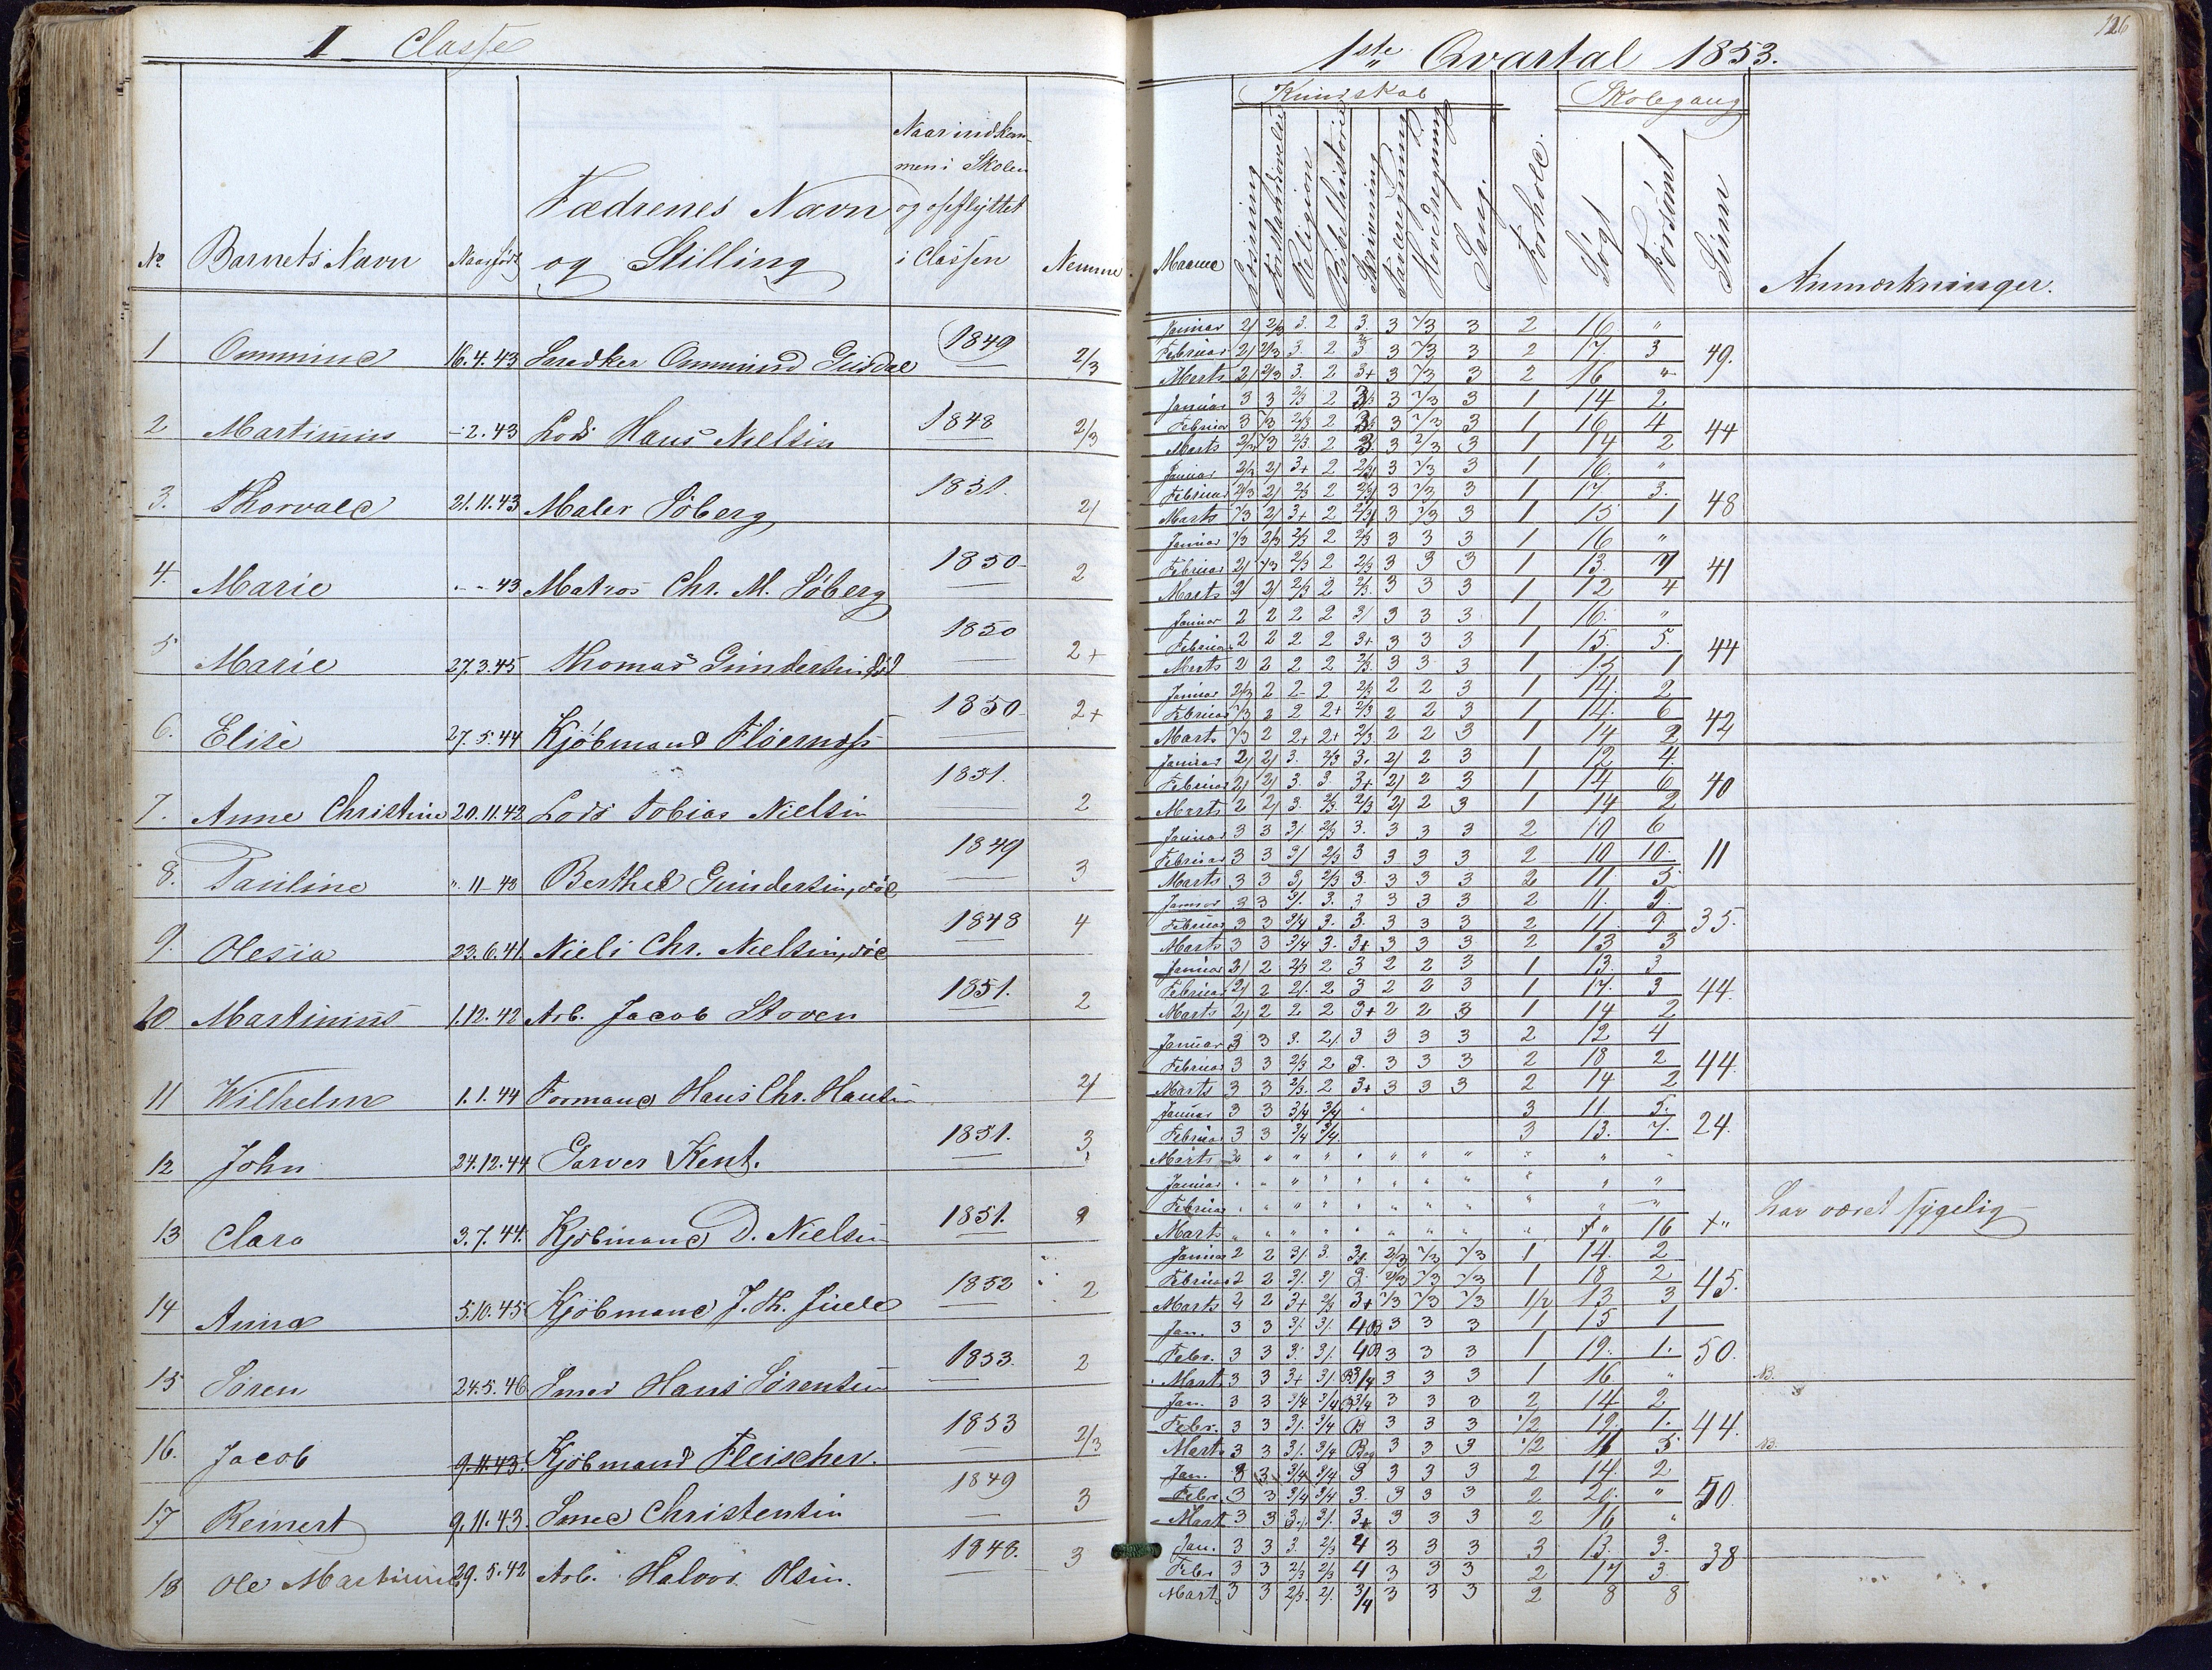 I Classe
No. Barnets Navn Naar født Fædrenes Navn og Stilling Naar indkommen i Skolen og opflyttet i Classen Nemme
1 Ommine 16.4.43 Ommund 1849 2/3
2 Martinius - 2.43 Lods Hans Nielsen 1848 2/3
3. Thorvald 21.11.43 Maler Søberg 1851. 2/
4. Marie - - 43 Matros Chr. M. Søberg 1850 2
5 Marie 27.3.45 Thomas Gundersen, død 1850 2+
6. Elise 27.5.44 Kjøbmand 1850 2+
7. Anne Christine 20.11.42 Lods Tobias Nielsen 1851. 2
8. Pauline ". 11 - 43 Berthel Gundersen, død 1849 3
9. Olesia 23.6.41 Niels Chr. Nielsen, død 1848 4
10 Martinius 1.12.42 Arb. Jacob Stoven 1851. 2
11 Wilhelm 1.1.44 Formand Hans Chr. Hansen 2/
12 John 24.12.44 Garver Kent. 1851. 3
13 Clara 3.7.44. Kjøbmand D. Nielsen 1851.
14 Anna 5.10.45 Kjøbmand J. Th. Juell 1852 2
15 Søren 24.5.46 Smed Hans Sørensen 1853. 2
16. Jacob 9.11.43. Kjøbmand Fleischer. 1853 2/3
17 Reinert 9.11.43. Smed Christensen 1849 3
18 Ole Martinius 29.5.42 Arb. Halvor Olsen. 1848. 3
126
1ste Qvartal 1853.
Kundskab Skolegang
Maaned Læsning Forstandsøvelse Religion Bibelhistorie Skrivning Tavleregning Hovedregning Sang. Forhold. Søgt Forsømt Sum Anmærkninger.
Januar 2/ 2/3 3. 2 3. 3 2/3 3 2 16 "
Februar 2/ 2/3 3. 2 3 3 2/3 3 2 17 3 49.
Marts 2/ 2/3 3. 2 3+ 3 2/3 3 2 16 "
Januar 3 3 2/3 2 3 2/3 3 1 14 2
Februar 3 2/3 2/3 2 3 2/3 3 1 16 4 44
Marts 2/3 2/3 2/3. 2 3 2/3 3 1 14 2
Januar 2/3 2/ 3+ 2 2/3 3 2/3 3 1 16. "
Februar 2/3 2/ 2/3 2 2/3 3 2/3 3 1 17 3. 48
Marts 2/3 2/ 3+ 2 2/3 3 2/3 3 1 15 1
Januar 2/3 2/3 2/3 2 2/3 3 3 3 1 16 "
Februar 2/ 2/3 2/3 2 2/3 3 3 3 1 13 7 41
Marts 2/ 2/ 2/3 2 2/3. 3 3 3 1 12 4
Januar 2 2 2 2 3/ 3 3 3 1 16. "
Februar 2 2 2 2 3+ 3 3 3 1 15. 5. 44
Marts 2 2 2 2 2/3. 3 3 3 1 15 1
Januar 2/3 2 2 2 2/3 2 2 3 1 14. 2
Februar 2/3 2 2 2+ 2/3 2 2 3 1 14. 6 42
Marts 2/3 2 2+ 2+ 2/3 2 2 3 1 14 2
Januar 2/ 2/ 3. 2/3 3. 2/ 2 3 1 12 4.
Februar 2/ 2/ 3. 3. 3+ 2/ 2 3 1 14 6 40
Marts 2 2/ 3. 2/3. 2/3 2/ 2 3 1 14 2
Januar 3 3 3/. 2/3 3. 3 3 3 2 10 6
Februar 3 3 3/ 2/3 3 3 3 3 2 10 10. 11
Marts 3 3 3/ 2/3 3. 3 3 3 2 11 5
Januar 3 3 3/. 3. 3 3 3 3 2 11. 5.
Februar 3 3 3/4 3. 3. 3 3 3 2 11. 9. 35.
Marts 3 3 3/4 3. 3+ 3 3 3 2 13 3
Januar 2/ 2 2/3 2 3 2 2 3 1 13. 3
Februar 2/ 2 2/. 2 3 2 2 3 1 17. 3 44.
Marts 2/ 2 2 2 3+ 2 2 3 1 14 2
Januar 3 3 3. 2/. 3 3 3 3 2 12 4
Februar 3 3 2/3 2 3. 3 3 3 2 18 2 44.
Marts 3 3 2/3. 2 3+ 3 3 3 2 14 2
Januar 3 3 3/4 3/4 " 3 11. 5.
Februar 3 3 3/4 3/4. 3 13. 7. 24.
Marts " " " " " " " " " "
Januar " " " " " " " " " " "
Februar " " " " " " " " " " "
Marts " " " " " " " " " 16 +" har været sygelig
Januar 2 2 3/. 3. 2/3 2/3 2/3 1 14. 2
Februar 2 2 3/. 3/. 3 2/3 2/3 2/3 1 18 2 45.
Marts 2 2 3+ 2/3 3+ 2/3 2/3 2/3 1/2 13 3
Jan. 3 3 3/. 3/. 4B 3 3 3 1 15 1
Febr. 3 3 3. 3/. 4B 3 3 3 1 19. 1. 50.
Mart. 3 3 3+ 3/. B3/4 3 3 3 1 16. " NB.
Jan. 3 3 3/4 3/4 B3/4 3 3 3 2 14 2
Febr. 3 3 3/. 3/4 B 3 3 3 1/2 19. 1. 44.
Mart. 3 3 3/. 3/4 Bog 3 3 3 1/2 11 5 NB.
Jan. 3 3 3/4 3/4 3 3 3 3 2 14. 2
Febr. 3 3 3/4 3/4 3. 3 3 3 2 20. " 50.
Mart. 3 3 3/. 3/. 3+ 3 3 3 2 16 "
Jan. 3 3 3. 2/3 4 3 3 3 3 13. 3.
Febr. 3 3 2/3 2/3 4 3 3 3 2 17 3 38
Mart. 3 3 2/3. 2/. 3/4 3 3 3 2 8 8